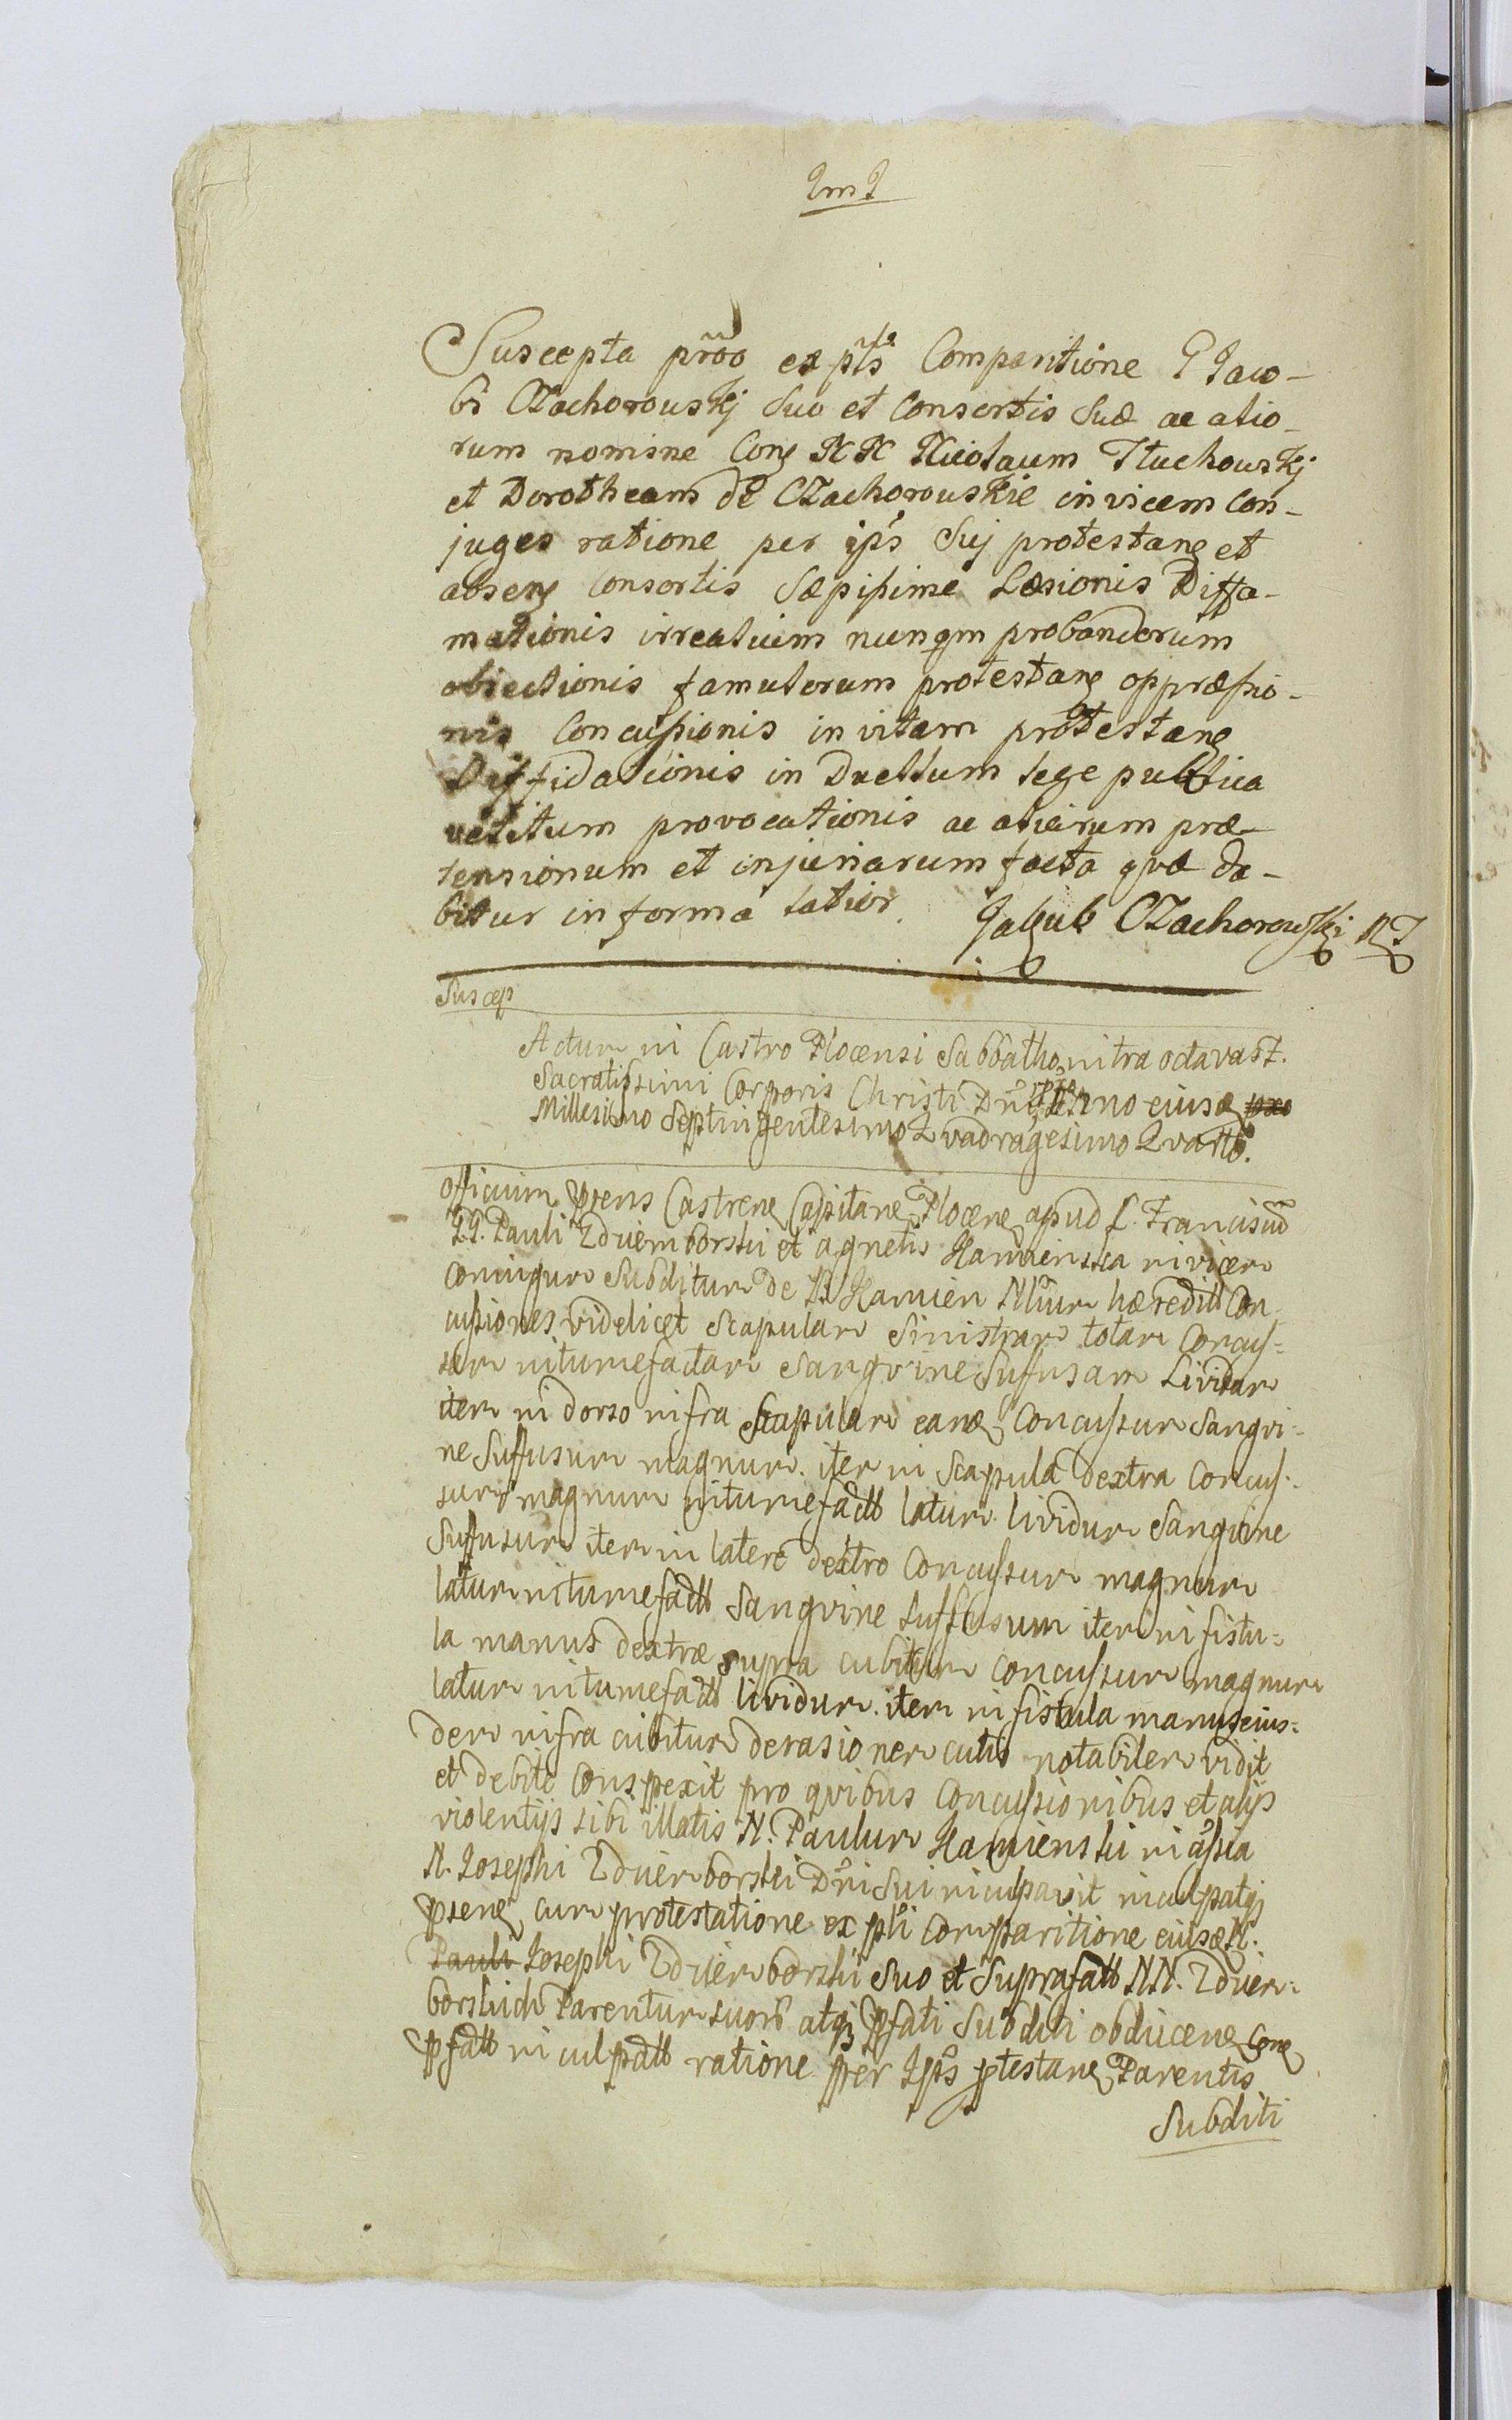 Suscepta prõo ex ptĩs Comparitione G Jaco-
bi CZachorouskj Suo et Consortis Suæ ac alio-
rum nomine Cong NN Nicolaum Tłuchouskj
et Dorotheam de CZachorouskie invicem Con-
juges ratione per ips Suj protestang et
abseng Consortis Sæpissime Læsionis Diffa-
mationis irreatuum nunqm probandorum
obiectionis famulorum protestang oppræssio-
nis Concussionis in vitam protestang
Diffidationis in Duellum lege publica
vetitum provocationis ac aliarum præ-
tensionum et injuriarum facta qvæ da-
bitur in forma latior. Jakub CZachorowski
Suscep
Actum in Castro Plocensi Sabbatho intra octavas F.
Sacratissimi Corporis Christi Dni Anno eiusd
Millesimo Septingentesimo Qvadragesimo Qvarto.
officium psens Castrene Capitane Plocene apud f. Franciscũ
GG. Pauli Zdviemborski et Agnetis Kamienska invicem
Coniugum Subditum de B. Kamien hæredit Con-
cussiones videlicet Scapulam Sinistram totam Concus-
sam intumefactam Sangvine Sufusam Lividam
item in dorso infra Scapulam eand Concussum Sangvi-
ne Suffusum magnum. item in Scapula dextra Concus-
sum magnum intumefactt latum lividum Sangvine
Suffusum item in latere dextro Concussum magnum
latum intumefactt Sangvine suffusum item in fistu-
la manus dextræ supra cubitum concussum magnum
latum intumefactt lividum. item in fistula manus eius-
dem infra cubitum derasionem cutis notabilem vidit
et debite Conspexit pro qvibus Concussionibus et alijs
violentijs sibi illatis N. Paulum Kamienski in assia
N. Josephi Zdviemborski Dni Sui inculpavit inculpatqz
psene cum protestatione ex ptĩ Comparitione eiusd N.
Pauli Josephi Zdviemborski Suo et Suprafatt NN. Zdviem-
borskich Parentum suorũ atqz pfati Subditi obducene Cone
pfatt inculpatt ratione per Ips ptestane Parentis
Subditi